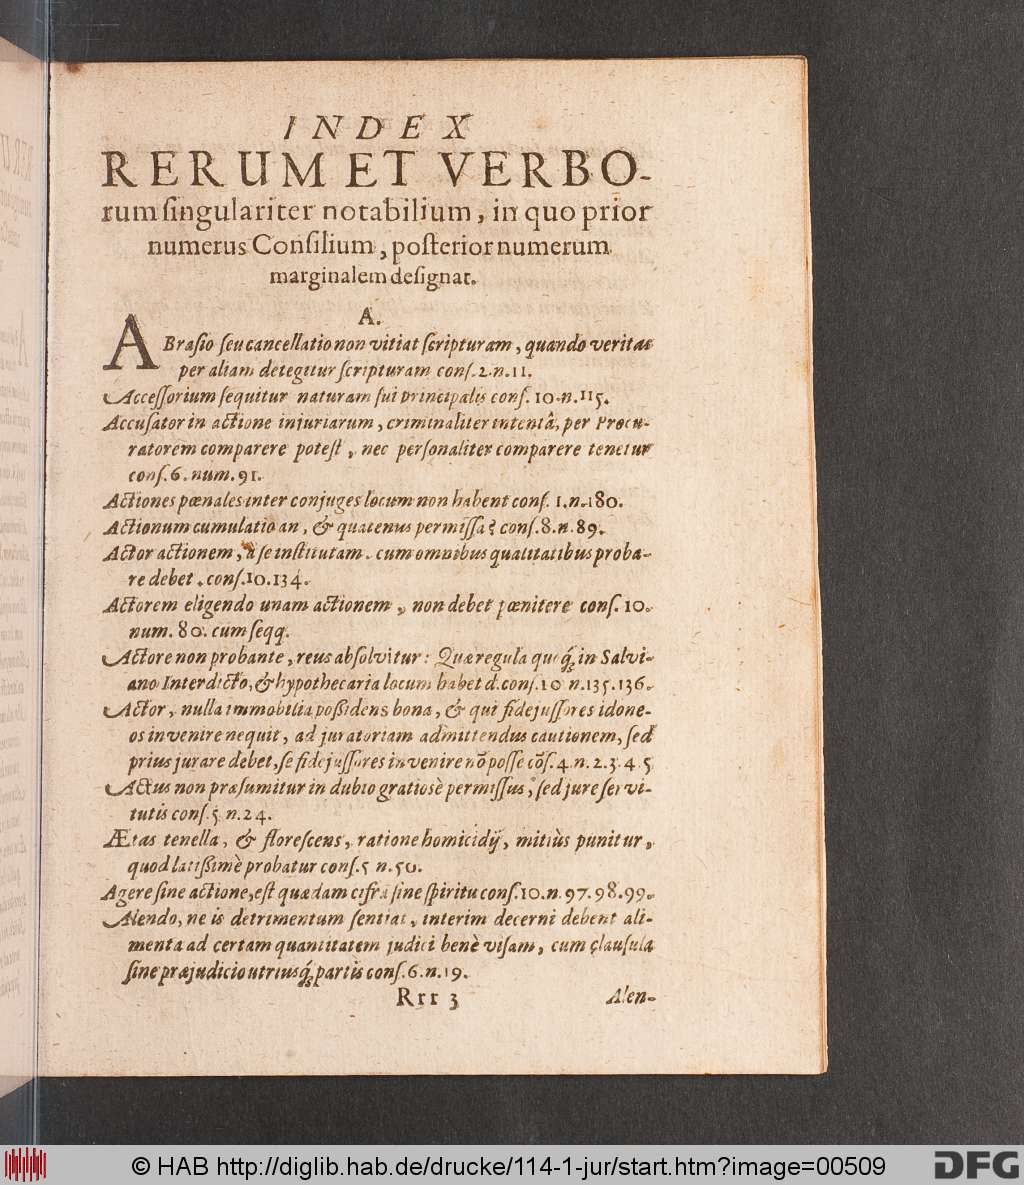 INDEX
RERUM ET VERBO-
rum ſingulariter notabilium, in quo prior
numerus Conſilium, poſterior numerum
marginalem deſignat.
A.
ABraſio ſeu cancellatio non vitiat ſcripturam, quando veritas
per aliam detegitur ſcripturam conſ. 2. n. 11.
Acceſſorium ſequitur naturam ſui principalis conſ. 10. n. 115.
Accuſator in actione injuriarum, criminaliter intentâ, per Procu-
ratorem comparere poteſt, nec perſonaliter comparere tenetur
conſ. 6. num. 91.
Actiones pœnales inter conjuges locum non habent conſ. 1. n. 180.
Actionum cumulatio an, & quatenus permiſſa? conſ. 8. n. 89.
Actor actionem, à ſe inſtitutam, cum omnibus qualitatibus proba-
re debet. conſ. 10. 134.
Actorem eligendo unam actionem, non debet pœnitere conſ. 10.
num. 80. cum ſeqq.
Actore non probante, reus abſolvitur: Quæ regula quoq; in Salvi-
ano Interdicto, & hypothecaria locum habet d. conſ. 10 n. 135. 136.
Actor, nulla immobilia poßidens bona, & qui fidejuſſores idone-
os invenire nequit, ad juratoriam admittendus cautionem, ſed
prius jurare debet, ſe fidejuſſores invenire nō poſſe cōſ. 4. n. 2. 3. 4. 5
Actus non præſumitur in dubio gratiosè permiſſus, ſed jure ſervi-
tutis conſ. 5. n. 24.
Ætas tenella, & floreſcens, ratione homicidij, mitiùs punitur,
quod latißimè probatur conſ. 5 n. 50.
Agere ſine actione, eſt quædam cifra ſine ſpiritu conſ. 10. n. 97. 98. 99.
Alendo, ne is detrimentum ſentiat, interim decerni debent ali-
menta ad certam quantitatem judici benè viſam, cum clauſula
ſine præjudicio utriusq; partis conſ. 6. n. 19.
Rrr 3 Alen-
© HAB http://diglib.hab.de/drucke/114-1-jur/start.htm?image=00509
DFG